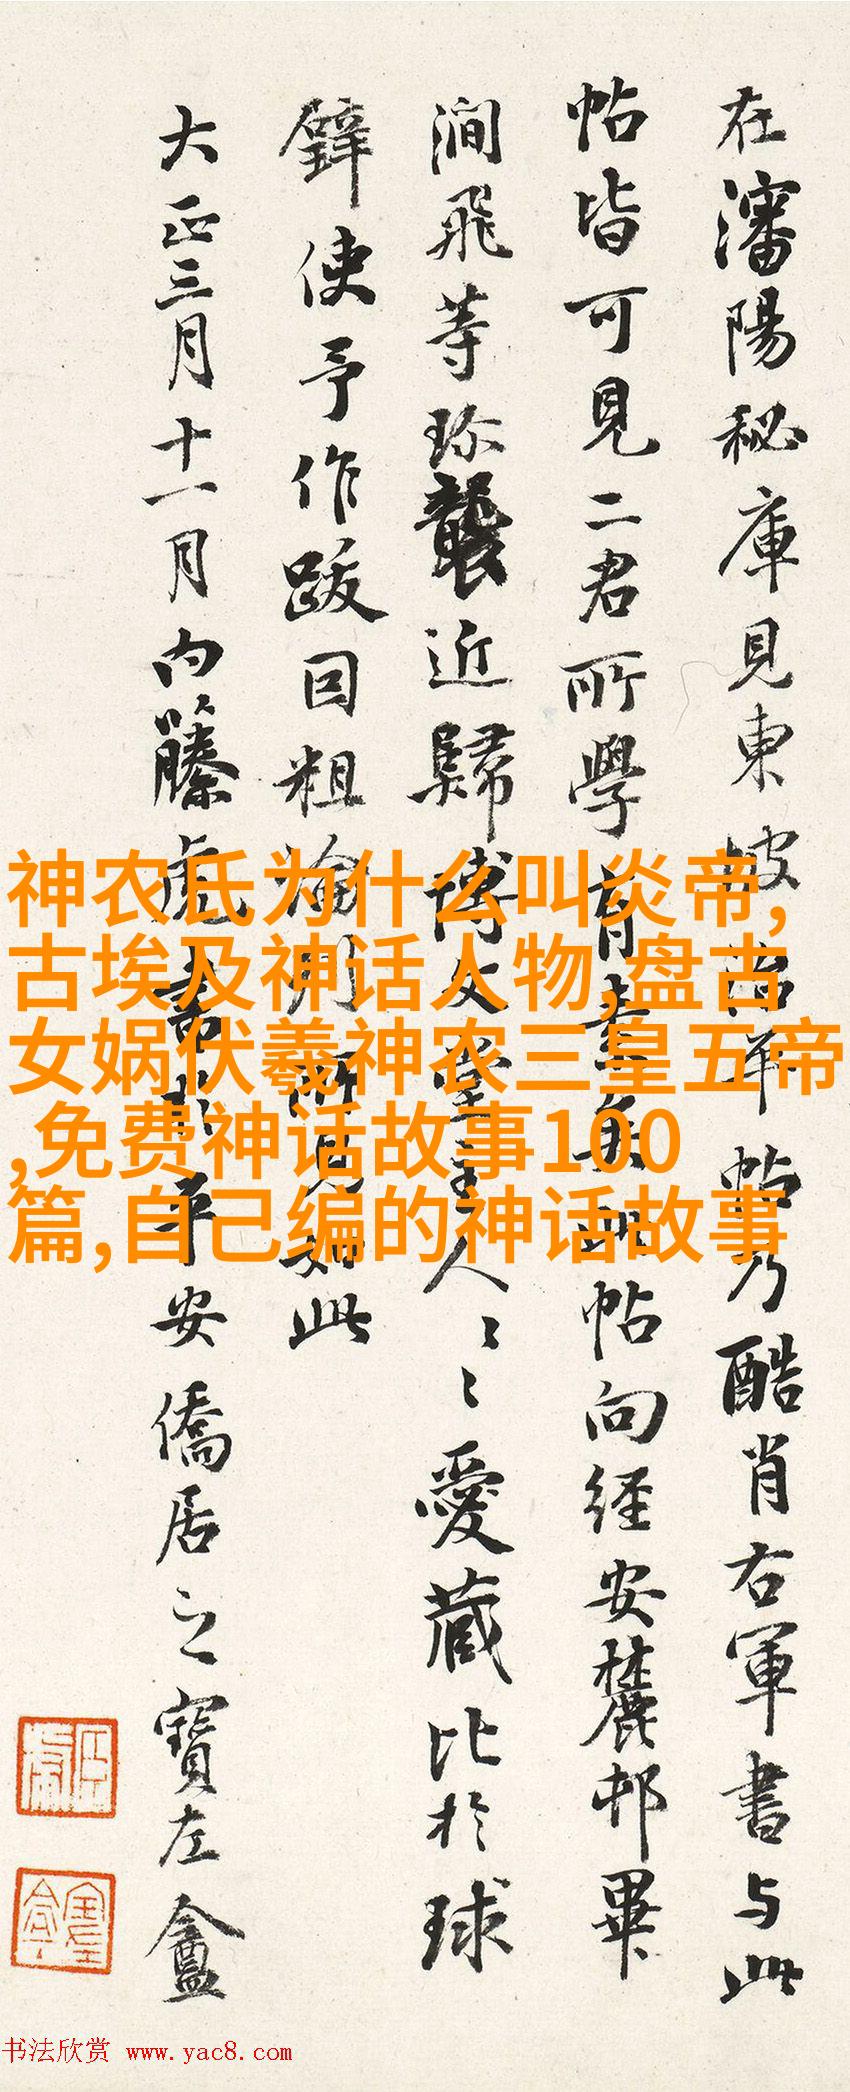 在瀋陽秘庫見東坡
帖乃酷肖右軍書与此
帖皆可見二君所學
帖向經安麓邨畢
澗飛等珎襲近歸博文堂主人
〻〻愛蔵比於球
使予作跋因粗
所見如此
大正三月十一月内藤虎書於平安僑居之寶左盦
神农氏为什么叫炎帝,
古埃及神话人物,盘古
女娲伏羲神农三皇五帝
,免费神话故事100
篇,自己编的神话故事
书法欣赏 www.yac8.com